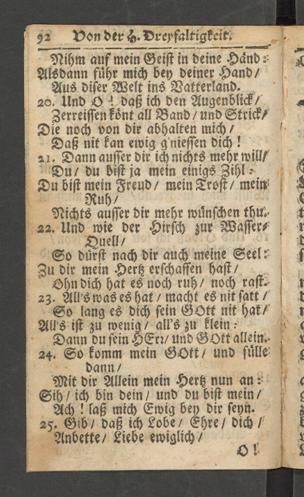 92 Von der H. Dreyfaltigkeit.
Nihm auf mein Geist in deine Händ:
Alsdann führ mich bey deiner Hand/
Aus diser Welt ins Vatterland.
20. Und O! daß ich den Augenblick/
Zerreissen könt all Band/ und Strick/
Die noch von dir abhalten mich/
Daß nit kan ewig g'niessen dich!
21. Dann ausser dir ich nichts mehr will/
Du/ du bist ja mein einigs Zihl:
Du bist mein Freud/ mein Trost/ mein
Ruh/
Nichts ausser dir mehr wünschen thu.
22. Und wie der Hirsch zur Wasser-
Quell/
So dürst nach dir auch meine Seel:
Zu dir mein Hertz erschaffen hast/
Ohn dich hat es noch ruh/ noch rast.
23. All's was es hat/ macht es nit satt/
So lang es dich sein GOtt nit hat/
All's ist zu wenig/ all's zu klein:
Dann du sein HErr/ und GOtt allein.
24. So komm mein GOtt/ und fülle
dann/
Mit dir Allein mein Hertz nun an:
Sih/ ich bin dein/ und du bist mein/
Ach! laß mich Ewig bey dir seyn.
25. Gib/ daß ich Lobe/ Ehre/ dich/
Anbette/ Liebe ewiglich/
O!